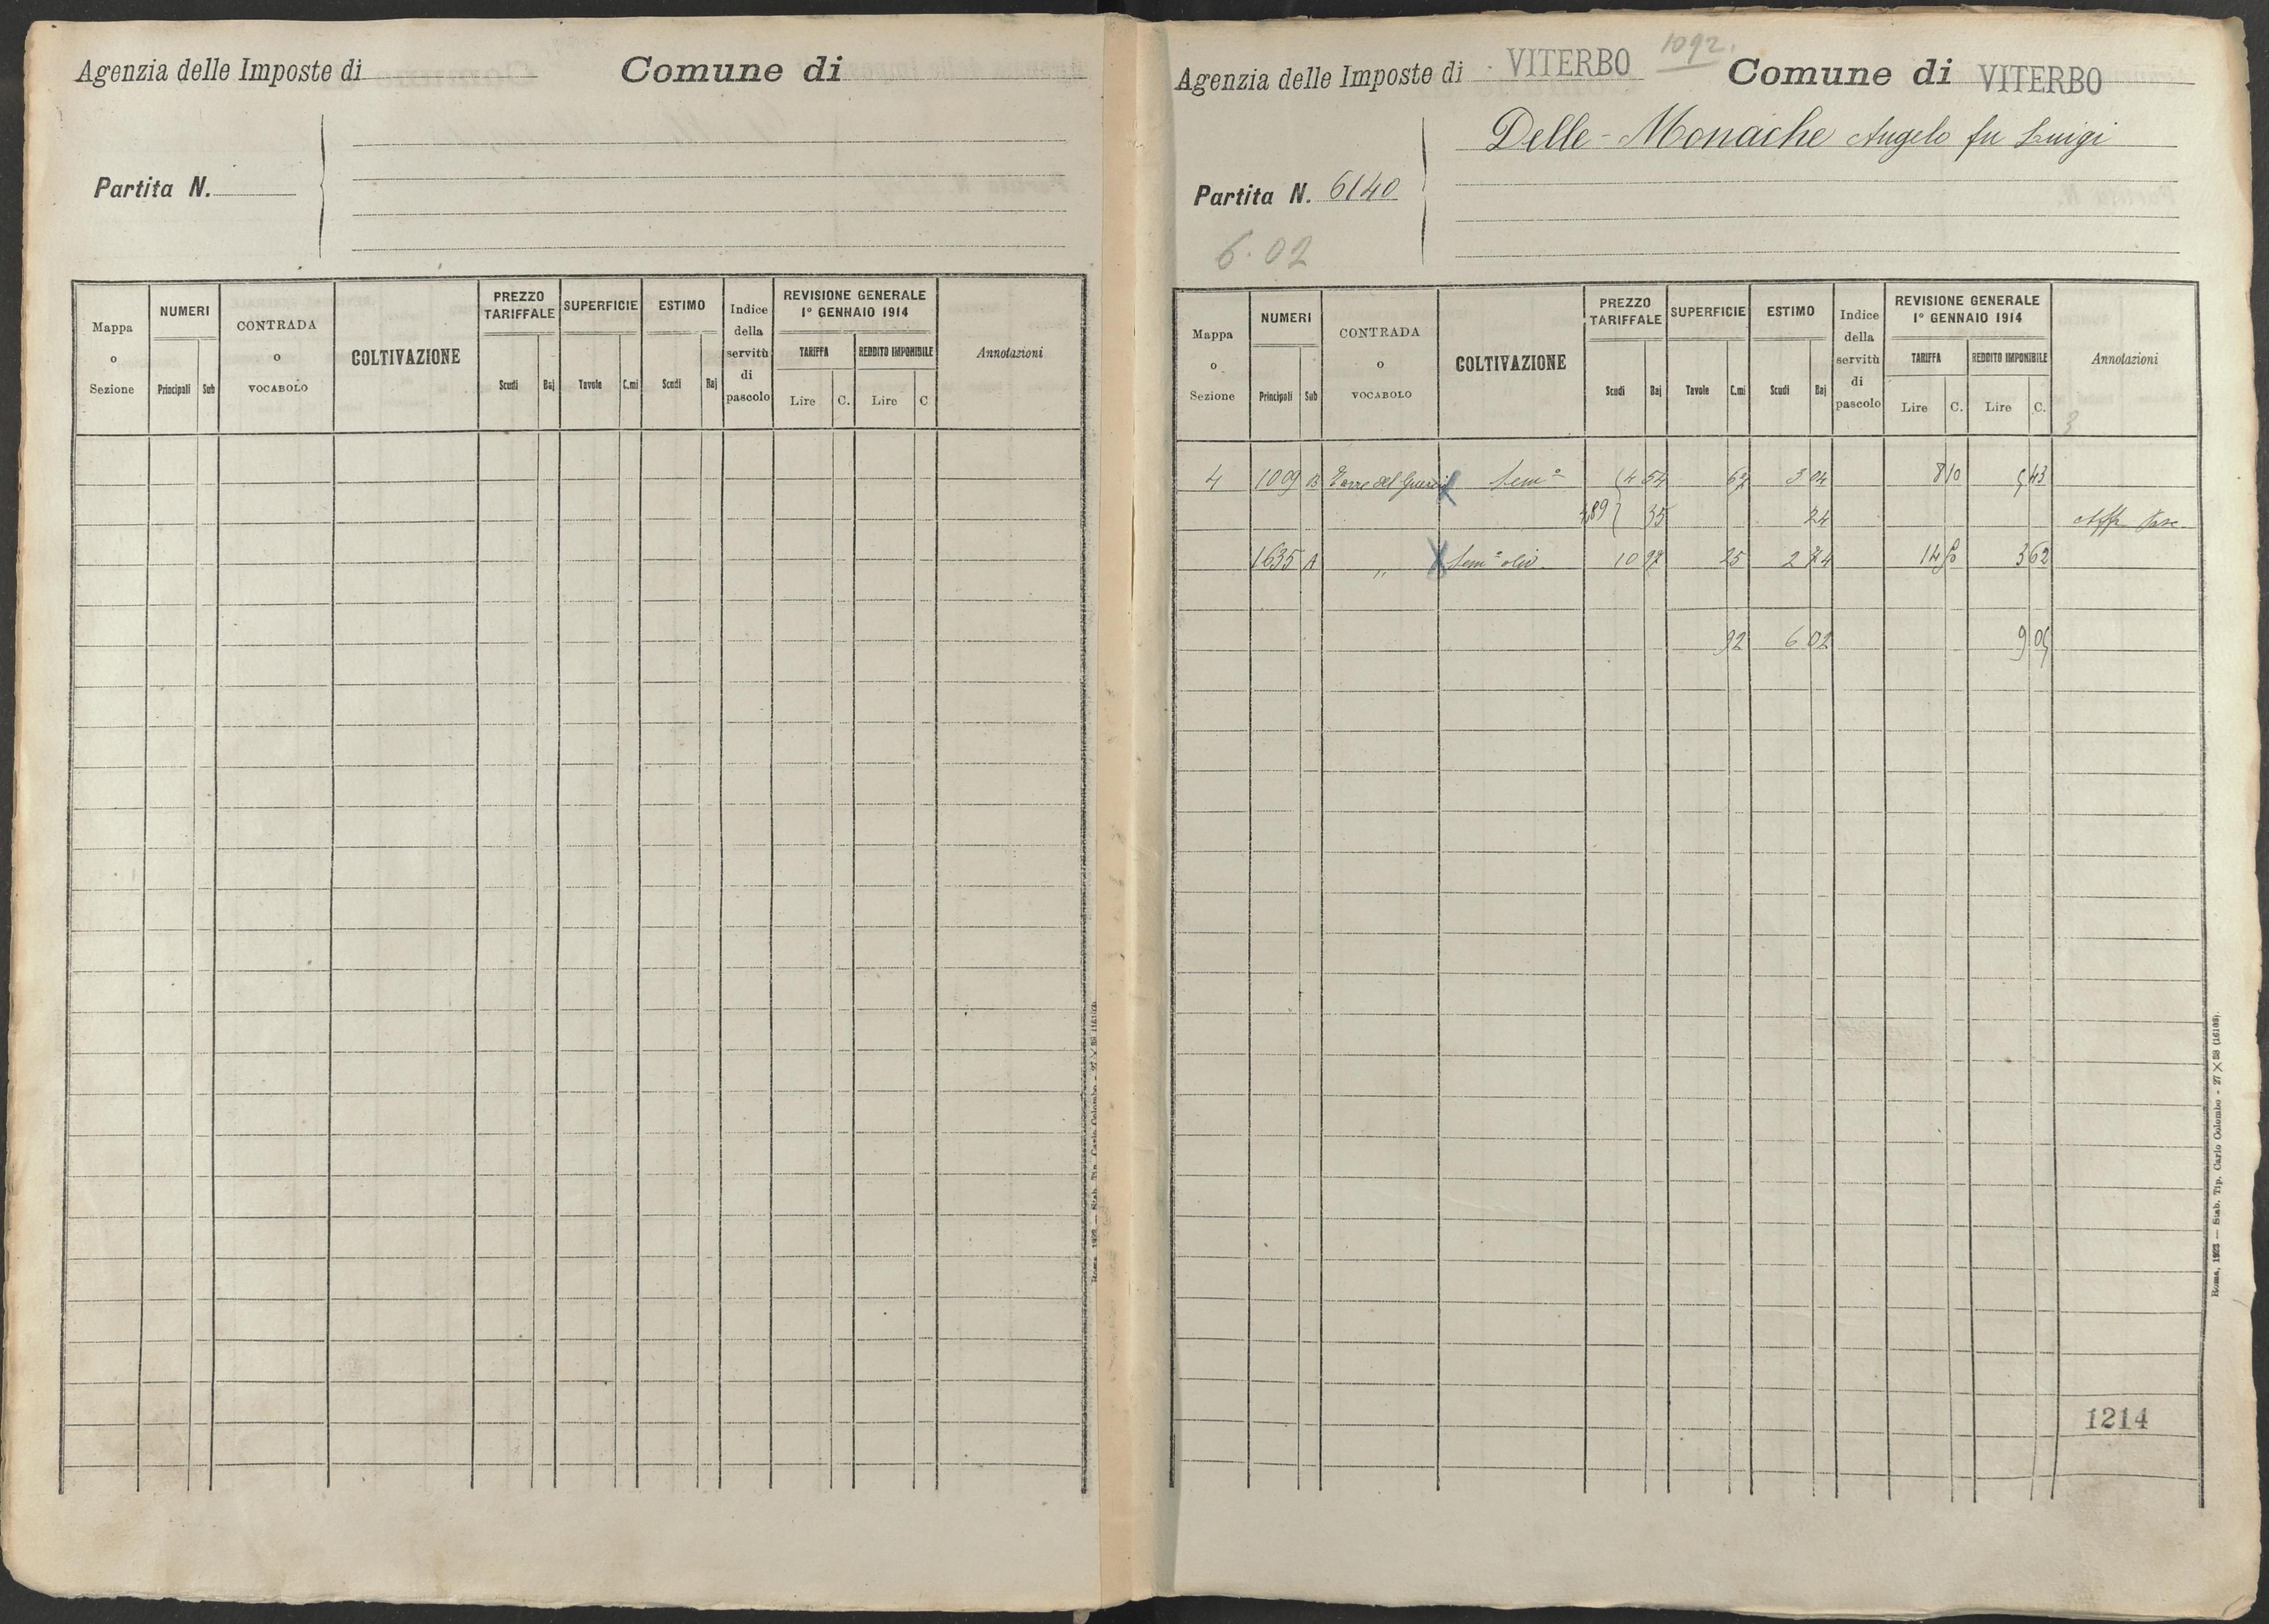 Agenzia delle Imposte di Comune di
Partita N.
Mappa o Sezione NUMERI Principali Sub CONTRADA o VOCABOLO COLTIVAZIONE PREZZO TARIFFALE Scudi Baj SUPERFICIE Tavole C.mi ESTIMO Scudi Baj Indice della servitù di pascolo REVISIONE GENERALE 1° GENNAIO 1914 TARIFFA Lire C. REDDITO IMPONIBILE Lire C Annotazioni
Roma, 1923 — Stab. Tip. Carlo Colombo - 27 × 38 (16103).
1092.
Agenzia delle Imposte di VITERBO Comune di VITERBO
Delle-Monache Angelo fu Luigi
Partita N. 6140
6.02
Mappa o Sezione NUMERI Principali Sub CONTRADA o VOCABOLO COLTIVAZIONE PREZZO TARIFFALE Scudi Baj SUPERFICIE Tavole C.mi ESTIMO Scudi Baj Indice della servitù di pascolo REVISIONE GENERALE 1° GENNAIO 1914 TARIFFA Lire C. REDDITO IMPONIBILE Lire C. Annotazioni
3
4 1009 B Torre del Sem° 4 54 67 3 04 8 10 5 43
4,89 35 24
1635 A " Sem° oliv. 10 97 25 2 74 14 50 3 62
92 6 02 9 05
1214
Roma, 1923 — Stab. Tip. Carlo Colombo - 27 × 38 (16103).